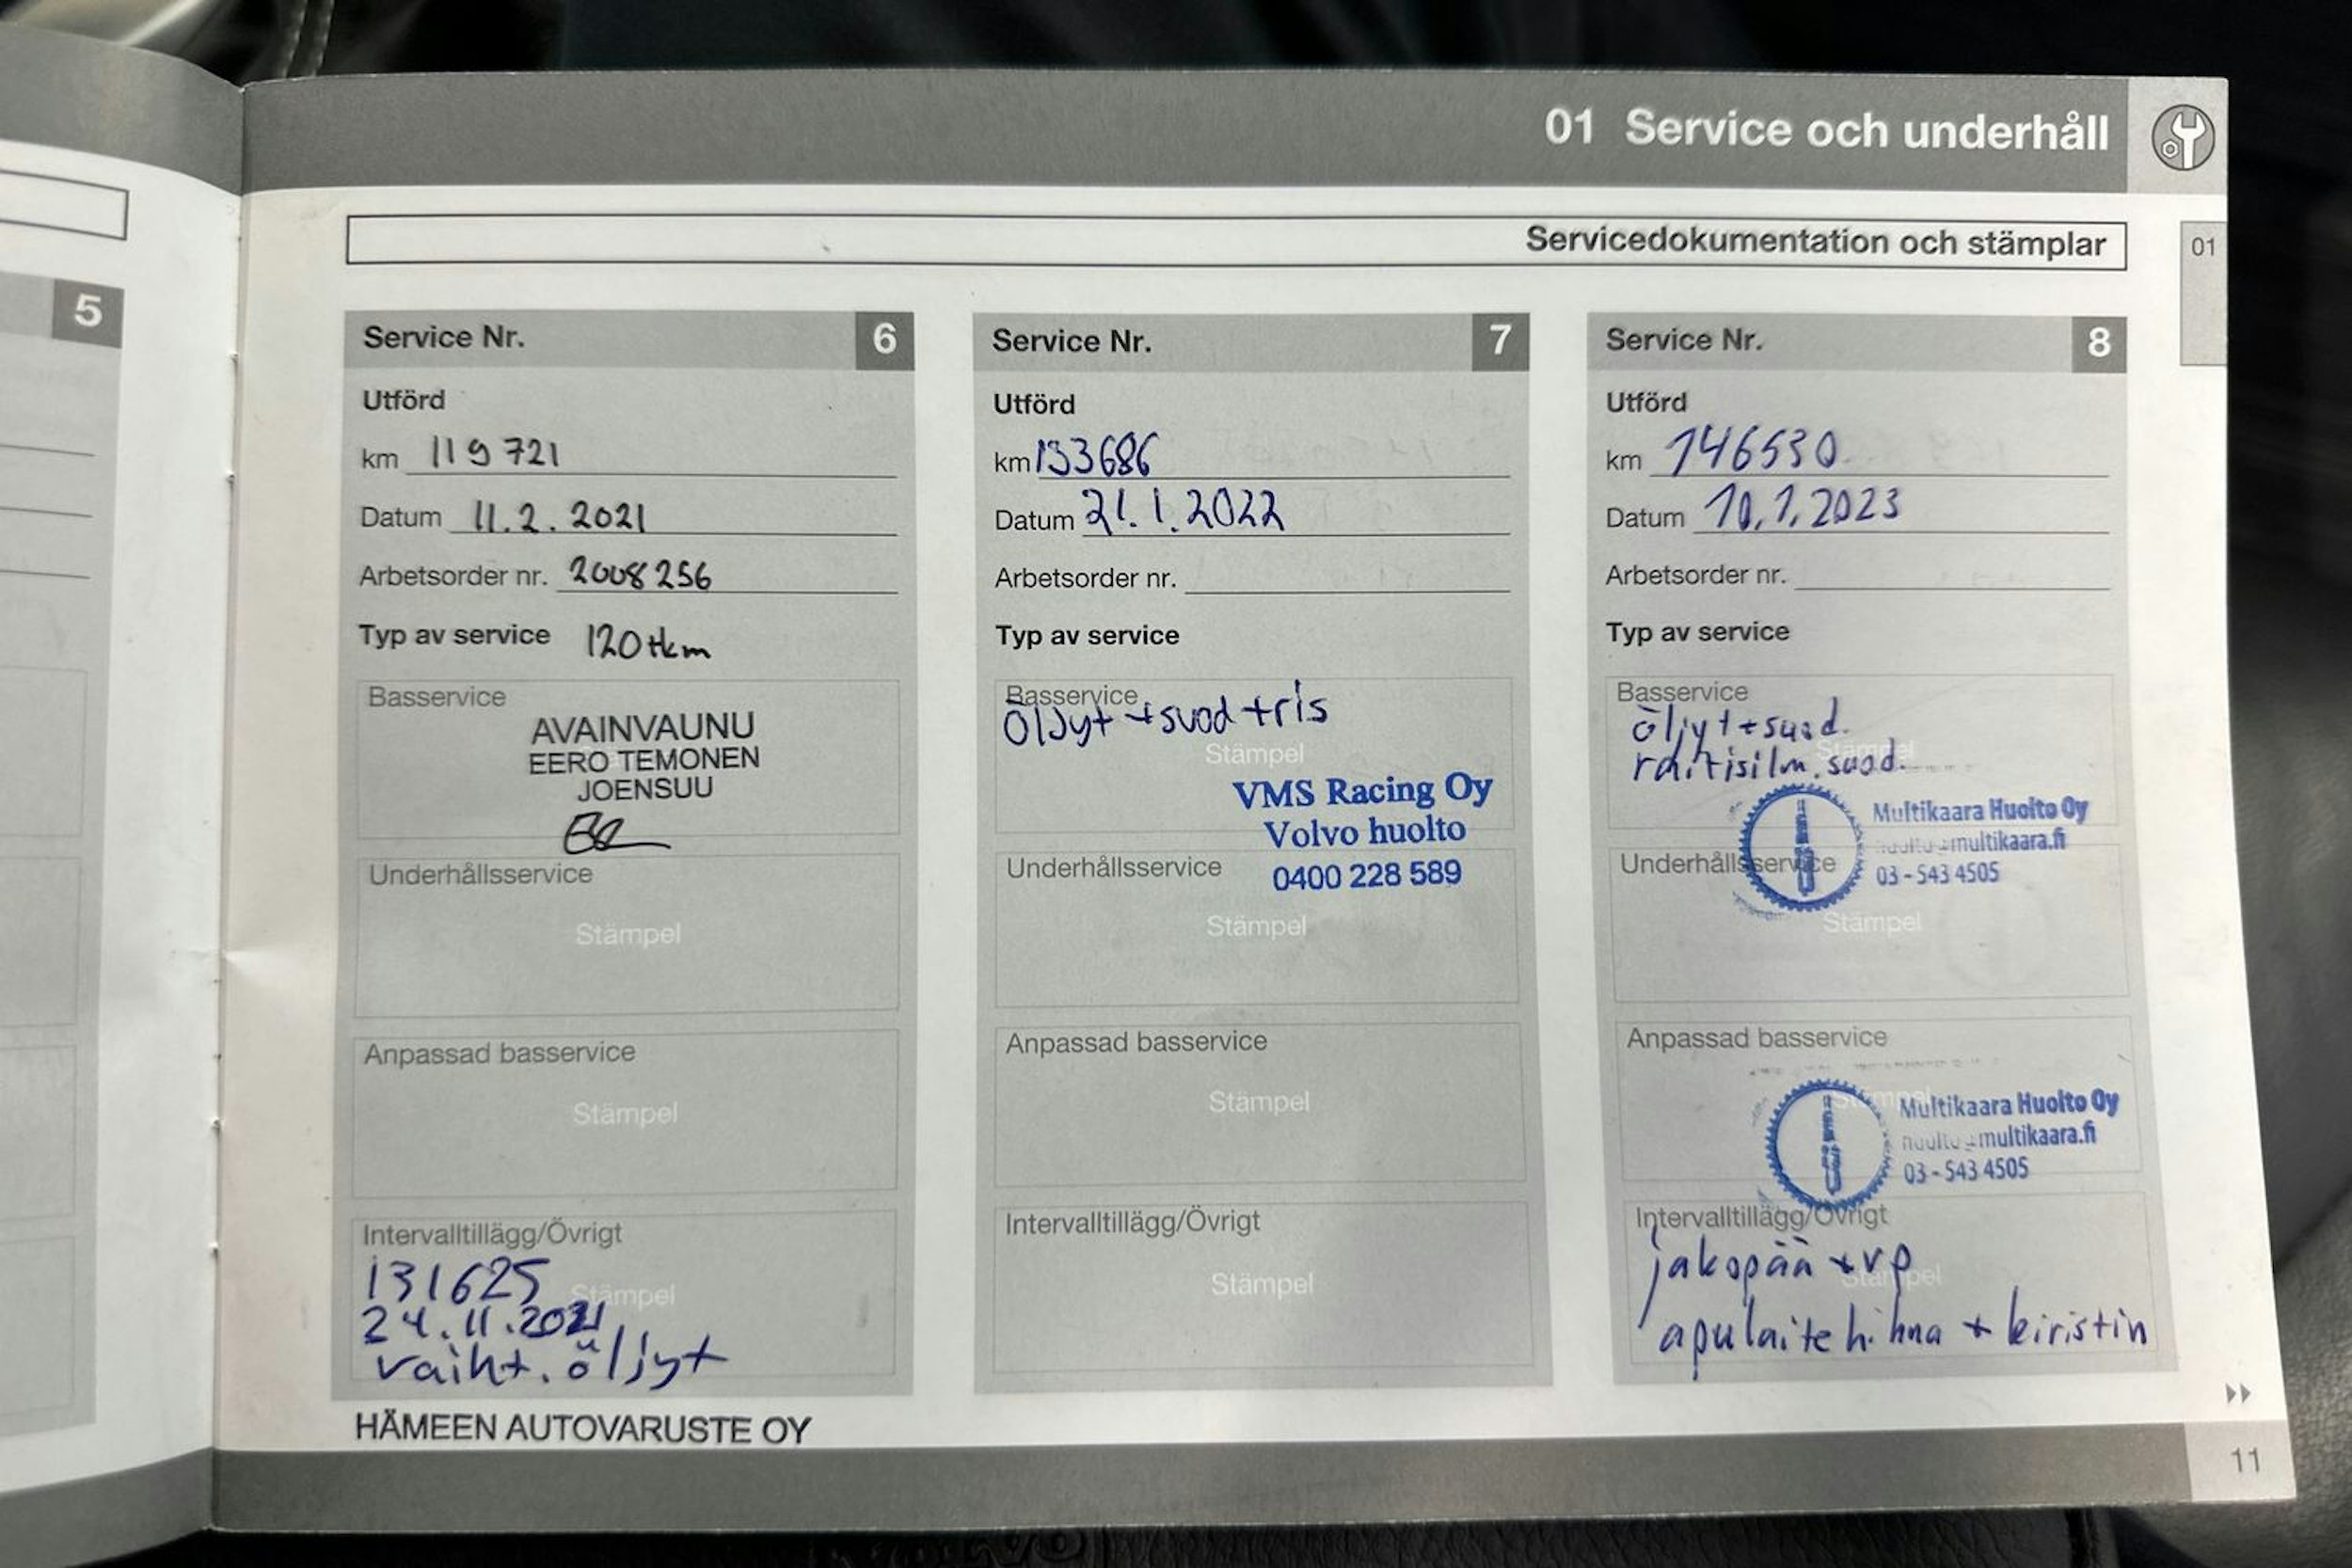 01 Service och underhåll
Servicedokumentation och stämplar
01
5
Service Nr. 6
Utförd
km 119 721
Datum 11.2.2021
Arbetsorder nr. 2008256
Typ av service 120tkm
Basservice
AVAINVAUNU
EERO TEMONEN
JOENSUU
Underhållsservice
Stämpel
Anpassad basservice
Stämpel
Intervalltillägg/Övrigt
131625
Stämpel
24.11.2021
vaiht. öljyt
HÄMEEN AUTOVARUSTE OY
Service Nr. 7
Utförd
km 133686
Datum 21.1.2022
Arbetsorder nr.
Typ av service
Basservice
Öljyt + suod + ris
Stämpel
VMS Racing Oy
Volvo huolto
0400 228 589
Underhållsservice
Stämpel
Anpassad basservice
Stämpel
Intervalltillägg/Övrigt
Stämpel
Service Nr. 8
Utförd
km 146530
Datum 10.1.2023
Arbetsorder nr.
Typ av service
Basservice
öljyt + suod.
Stämpel
raitisilm. suod.
Multikaara Huolto Oy
huolto@multikaara.fi
03 - 543 4505
Underhållsservice
Stämpel
Anpassad basservice
Stämpel
Multikaara Huolto Oy
huolto@multikaara.fi
03 - 543 4505
Intervalltillägg/Övrigt
jakopää + vp
Stämpel
apulaitehihna + kiristin
11